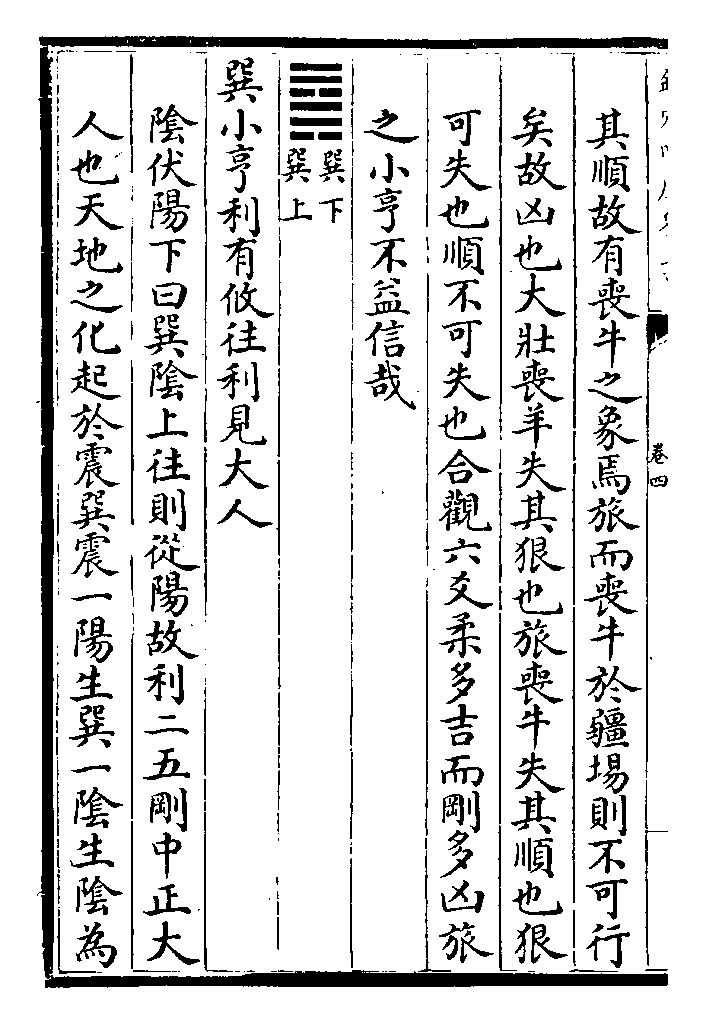 卷四
其順故有喪牛之象焉旅而喪牛於疆埸則不可行
矣故凶也大壯喪羊失其狠也旅喪牛失其順也狠
可失也順不可失也合觀六爻柔多吉而剛多凶旅
之小亨不益信哉
䷸巽下
巽上
巽小亨利有攸往利見大人
陰伏陽下曰巽陰上往則從陽故利二五剛中正大
人也天地之化起於震巽震一陽生巽一陰生陰為